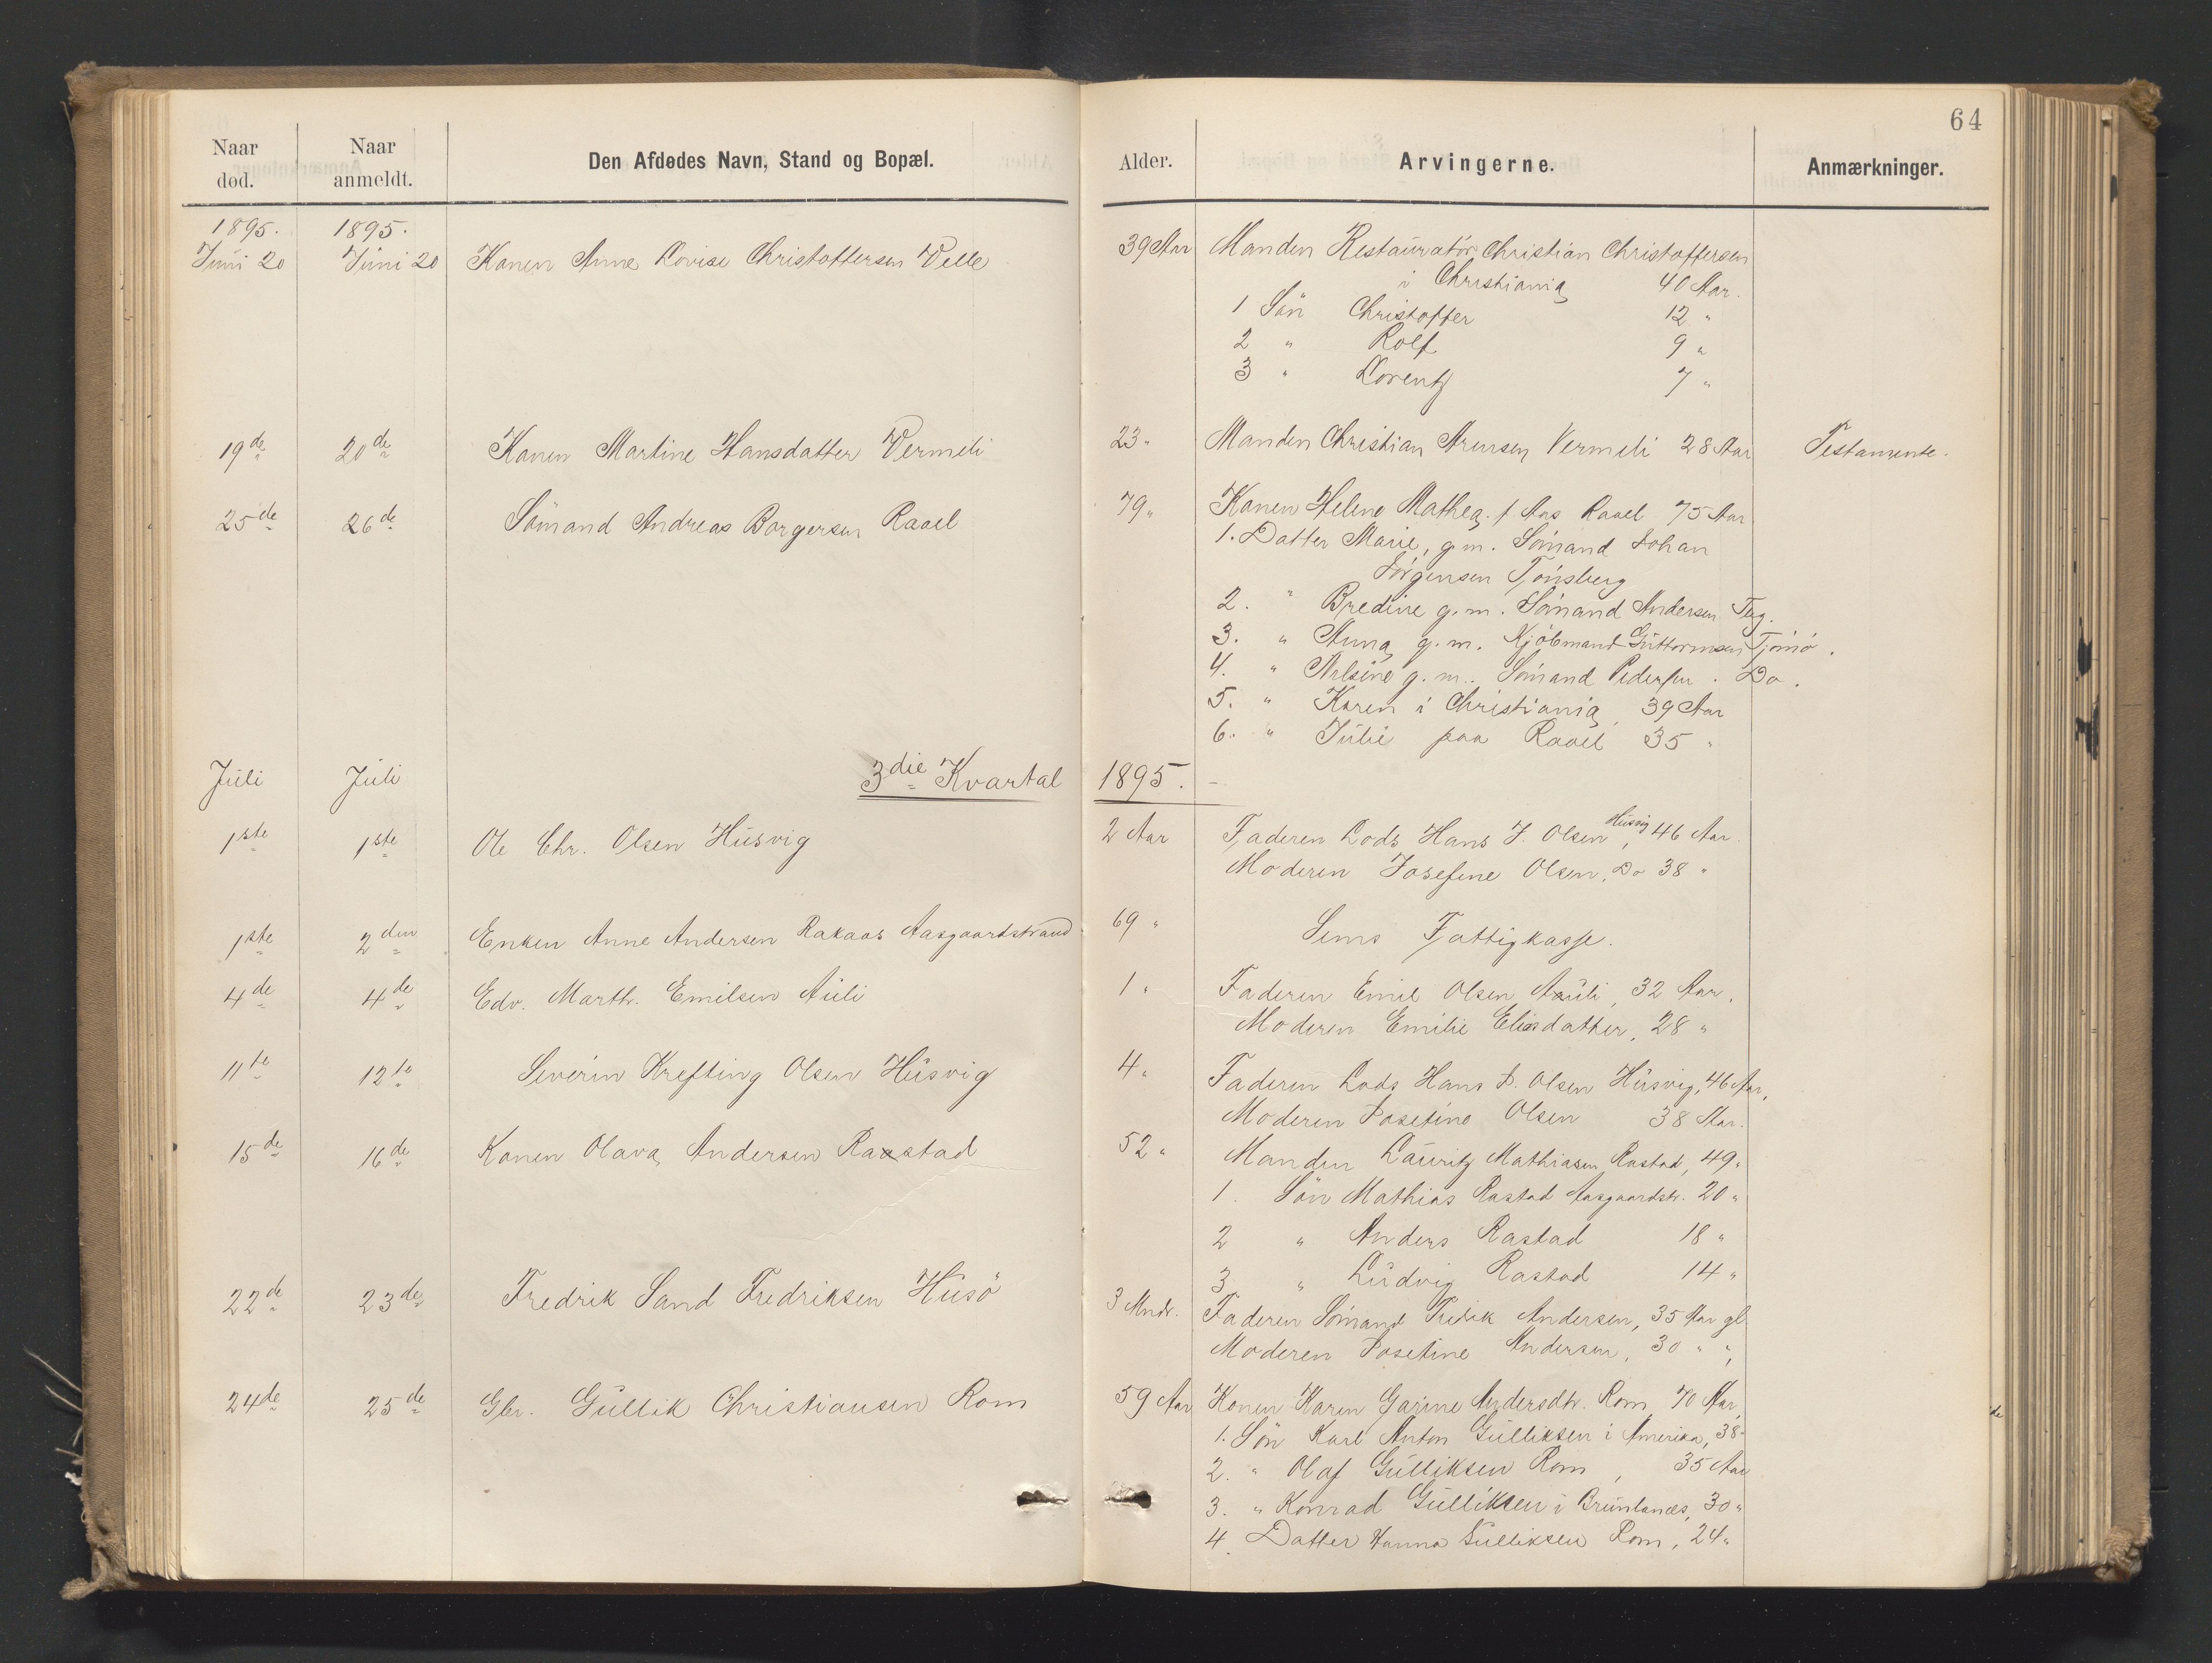 64
Naar død.
Naar anmeldt.
Den Afdødes Navn, Stand og Bopæl.
Alder.
Arvingerne.
Anmærkninger.
1895. 1895.
Juni 20 Juni 20 Konen Anne Lovise Christoffersen Velle 39 Aar Manden Restauratör Christian Christoffersen
i Christiania 40 Aar.
1 Sön Christoffer 12 "
2 " Rolf 9 "
3 " Lorentz 7 "
19de 20de Konen Martine Hansdatter Vermeli 23 " Manden Christian Arensen Vermeli 28 Aar Testamente.
25de 26de Sömand Andreas Borgersen Raael 79 " Konen Helene Mathea f Aas Raael 75 Aar
1. Datter Marie, g. m. Sömand Johan
Jörgensen Tönsberg
2. " Bredine g. m. Sömand Andersen Tbg.
3. " Anna g. m. Kjöbmand Guttormsen Tjömö.
4. " Nilsine g. m. Sömand Pedersen. Do.
5. " Karen i Christiania, 39 Aar
6. " Julie paa Raael 35 "
Juli Juli 3die Kvartal 1895. -
1ste 1ste Ole Chr. Olsen Husvig 2 Aar Faderen Lods Hans J. Olsen, Husvig 46 Aar.
Moderen Josefine Olsen, Do 38 "
1ste 2den Enken Anne Andersen Rakaas Aasgaardstrand 69 " Sems Fattigkasse.
4de 4de Edv. Marth. Emilsen Auli 1 " Faderen Emil Olsen Auli, 32 Aar.
Moderen Emilie Eliasdatter, 28 "
11te 12te Severin Krefting Olsen Husvig 4 " Faderen Lods Hans J. Olsen Husvig, 46 Aar,
Moderen Josefine Olsen 38 Aar.
15de 16de Konen Olava Andersen Rastad 52 " Manden Lauritz Mathiasen Rastad, 49 "
1. Sön Mathias Rastad Aasgaardstr. 20 "
2 " Anders Rastad 18 "
3 " Ludvig Rastad 14 "
22de 23de Fredrik Sand Fredriksen Husö 3 Mndr. Faderen Sömand Fredrik Andersen, 35 Aar gl
Moderen Josefine Andersen, 30 " "
24de 25de Gbr. Gullik Christiansen Rom 59 Aar Konen Karen Garine Andersdtr. Rom 70 Aar
1. Sön Karl Anton Gulliksen i Amerika, 38 "
2. " Olaf Gulliksen Rom, 35 Aar
3. " Konrad Gulliksen i Brunlanæs, 30 "
4. Datter Hanna Gulliksen Rom, 24 "